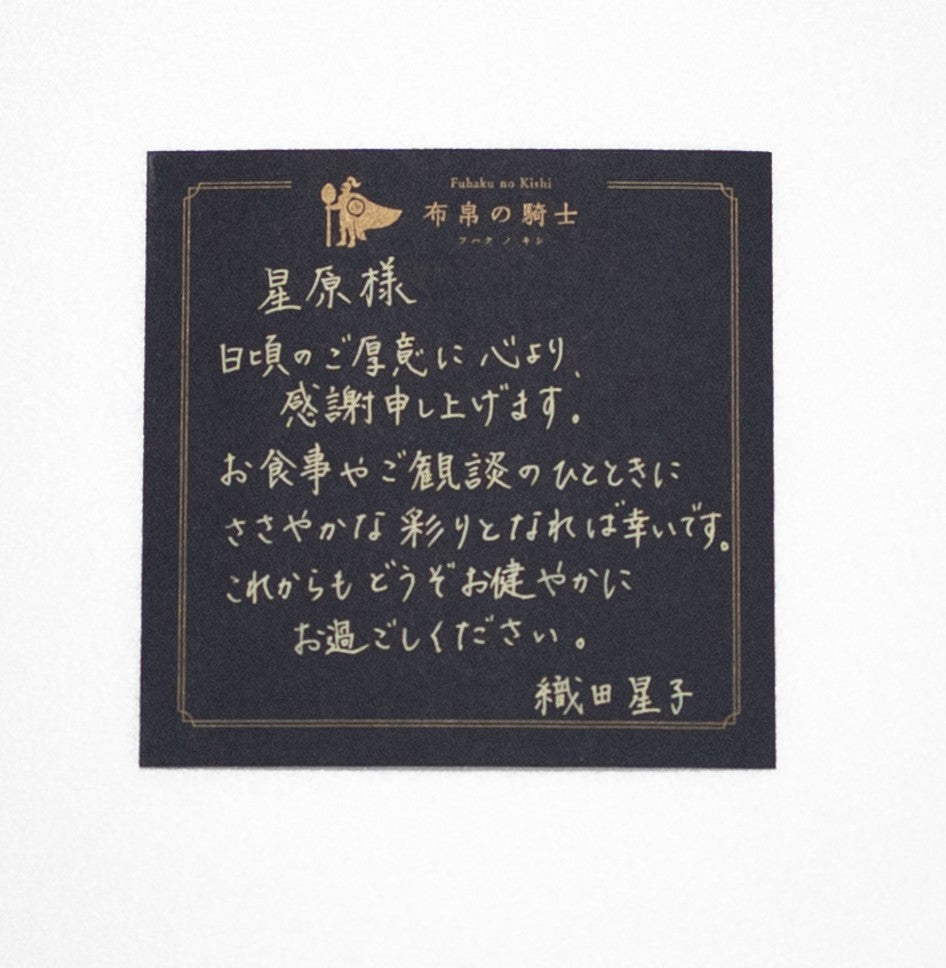 Fuhaku no Kishi
布帛の騎士
フハク ノ キシ
星原様
日頃のご厚意に心より、
感謝申し上げます。
お食事やご観談のひとときに
ささやかな彩りとなれば幸いです。
これからもどうぞお健やかに
お過ごしください。
織田星子